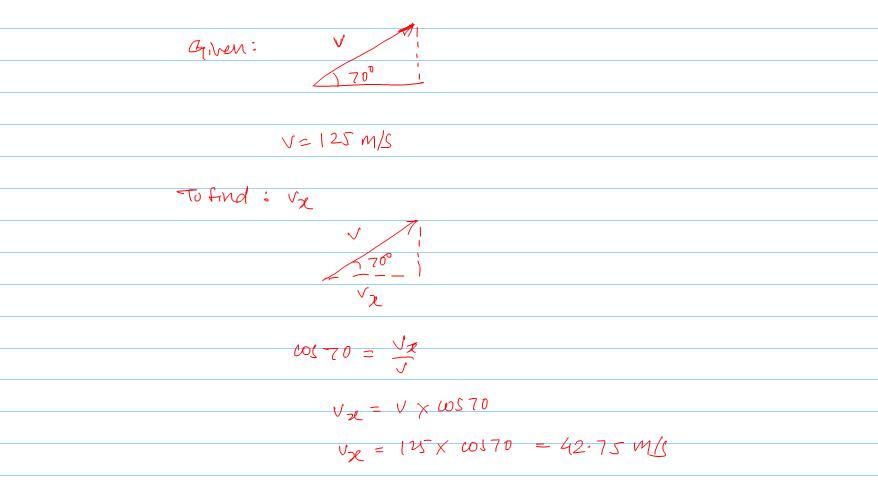 Given:
V
70°
V = 125 m/s
To find : Vx
V
70°
Vx
cos 70 = Vx/V
Vx = V × cos 70
Vx = 125 × cos 70 = 42.75 m/s